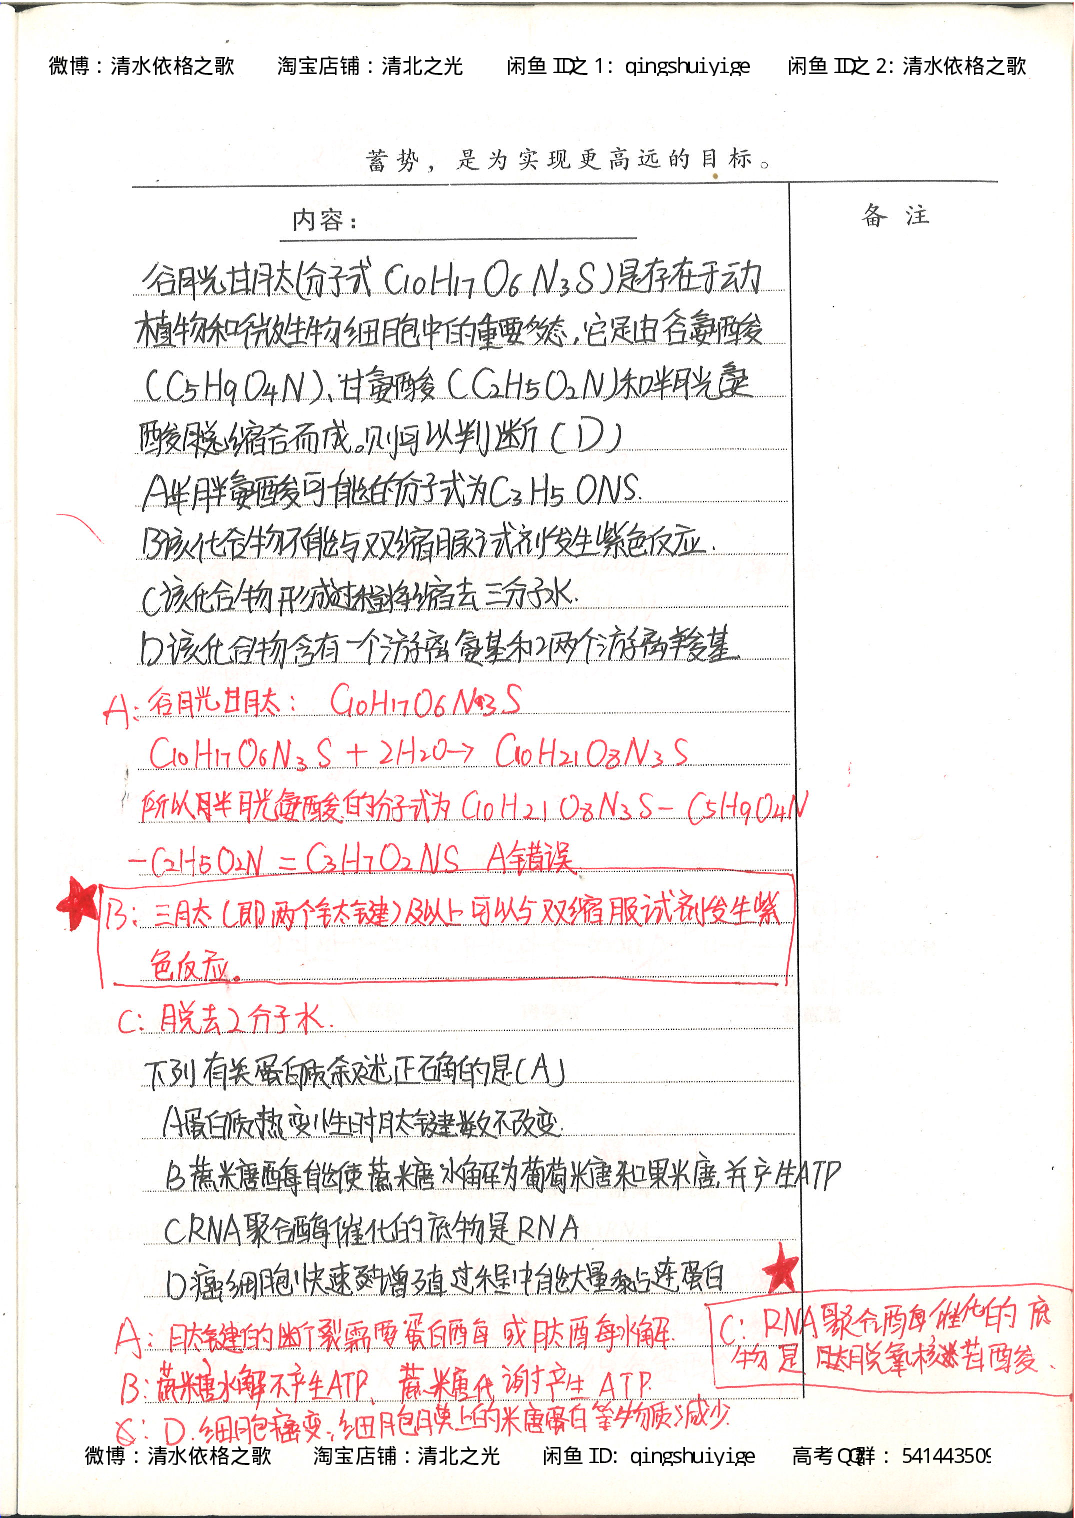 微博：清水依格之歌 淘宝店铺：清北之光 闲鱼 ID之 1：qingshuiyige 闲鱼 ID之 2：清水依格之歌
蓄势，是为实现更高远的目标。
内容： 备 注
谷胱甘肽(分子式 C10H17O6N3S)是存在于动
植物和微生物细胞中的重要多态,它是由谷氨酸
(C5H9O4N)、甘氨酸(C2H5O2N)和半胱氨
酸脱缩合而成。则可以判断(D)
A半胱氨酸可能的分子式为C3H5ONS.
B该化合物不能与双缩脲试剂发生紫色反应.
C该化合物形成过程将缩去三分子水.
D该化合物含有一个游离氨基和2两个游离羧基
A: 谷胱甘肽: C10H17O6N3S
C10H17O6N3S + 2H2O→ C10H21O8N3S
所以半胱氨酸的分子式为C10H21O8N3S-C5H9O4N
-C2H5O2N = C3H7O2NS A错误
B: 三肽(即两个肽键)及以上可以与双缩脲试剂发生紫
色反应。
C: 脱去2分子水.
下列有关蛋白质叙述正确的是(A)
A蛋白质热变性时肽键数不改变.
B蔗糖酶能使蔗糖水解为葡萄糖和果糖,并产生ATP
CRNA聚合酶催化的底物是RNA
D癌细胞快速增殖过程中能大量黏连蛋白
A: 肽键的断裂需要蛋白酶或肽酶水解.
C: RNA聚合酶催化的底
物是脱氧核苷酸.
B: 蔗糖水解不产生ATP, 蔗糖代谢产生ATP.
D: 细胞癌变,细胞膜上的糖蛋白等物质减少.
微博：清水依格之歌 淘宝店铺：清北之光 闲鱼 ID：qingshuiyige 高考 QQ群：541443509